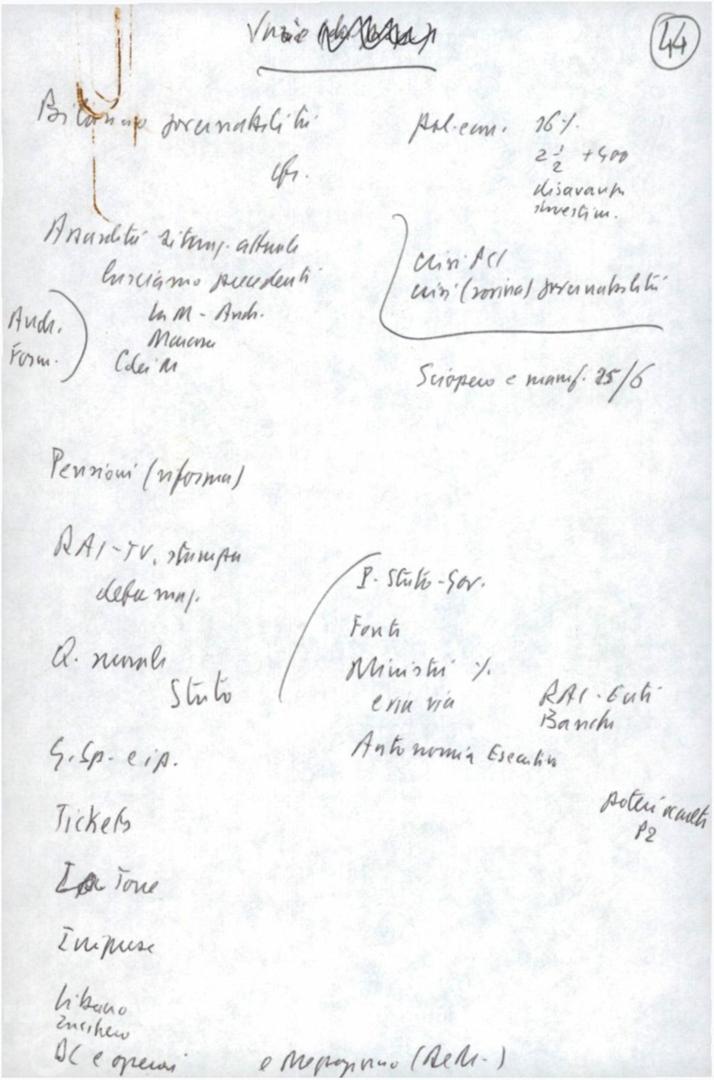 Varie
44
Bilancio governabilità
cfr.
Pol. econ. 16%
2 1/2 +400
disavanzo
investim.
Assurdità situaz. attuale
lasciamo precedenti
La M - Andr.
Andr.
Form.
C dei M
crisi PCI
crisi (rovina) governabilità
Sciopero e manif. 25/6
Pensioni (riforma)
RAI-TV, stampa
Q. morale
Stato
P. Stato-Gov.
Fonti
Ministri %
e via via
RAI-Enti
Banche
Autonomia Esecutivo
G. Sp. e ip.
poteri occulti
P2
Tickets
La Torre
Imprese
Libano
zucchero
DC e operai e Mezzogiorno (De M.)